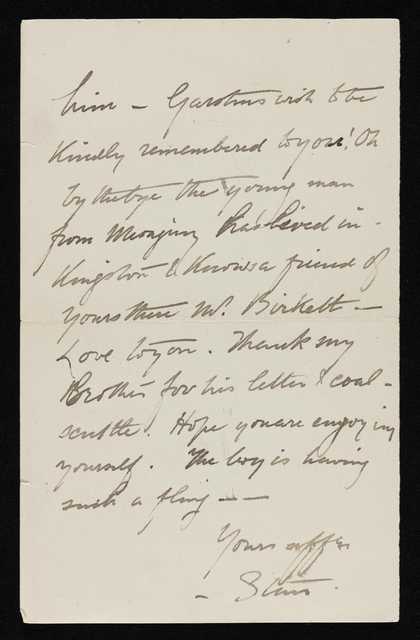 him — Gardners wish to be
kindly remembered to you! Oh
by the bye the young man
from has lived in
Kingston & knows a friend of
yours there Mr. Birkett —
Love to you. Thank my
Brother for his letter & coal-
scuttle. Hope you are enjoying
yourself. The boy is having
such a fling — —
Yours affec
—